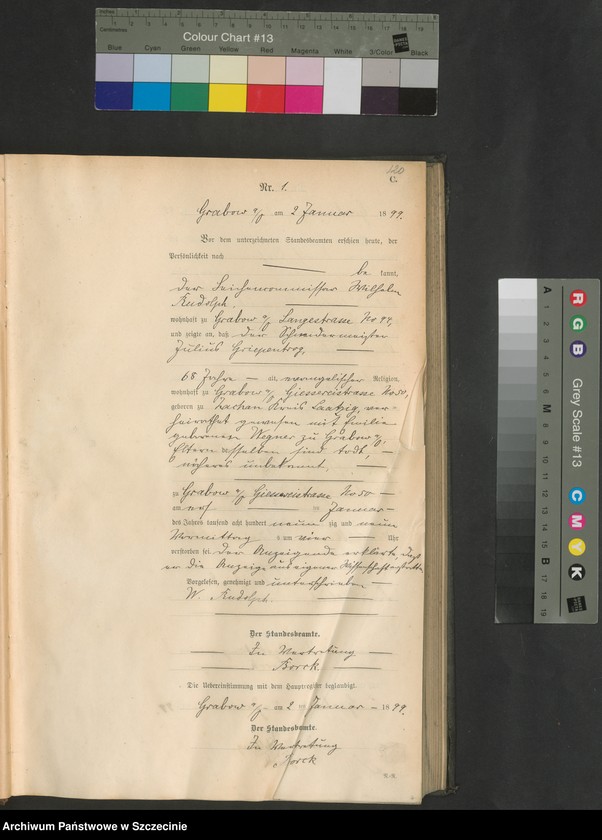 Colour Chart #13
Blue Cyan Green Yellow Red Magenta White 3/Color Black
C.
Nr. 1.
Grabow a/O am 2 Januar 1899.
Vor dem unterzeichneten Standesbeamten erschien heute, der
Persönlichkeit nach
be kannt,
der Leichencommissar Wilhelm
Rudolph.
wohnhaft zu Grabow a/O Langestrasse No 99,
und zeigte an, daß der Schneidermeister
Julius Griepentrog,
68 Jahre alt, evangelischer Religion,
wohnhaft zu Grabow a/O Giessereistrasse No 50,
geboren zu Zachan Kreis Saatzig, ver-
heirathet gewesen mit Emilie
geborenen Wegner zu Grabow a/O.
Eltern desselben sind todt,
näheres unbekannt.
zu Grabow a/O Giessereistrasse No 50
am ersten Januar
des Jahres tausend acht hundert neunzig und neun
Vormittag s um vier Uhr
verstorben sei. Der Anzeigende erklärte, daß
er die Anzeige aus eigener Wissenschaft erstatte
Vorgelesen, genehmigt und unterschrieben
W. Rudolph.
Der Standesbeamte.
In Vertretung
Borck.
Die Uebereinstimmung mit dem Hauptregister beglaubigt.
Grabow a/O am 2 ten Januar 1899.
Der Standesbeamte.
In Vertretung
Borck
Grey Scale #13
A
M
B
R
G
B
C
M
Y
K
Archiwum Państwowe w Szczecinie